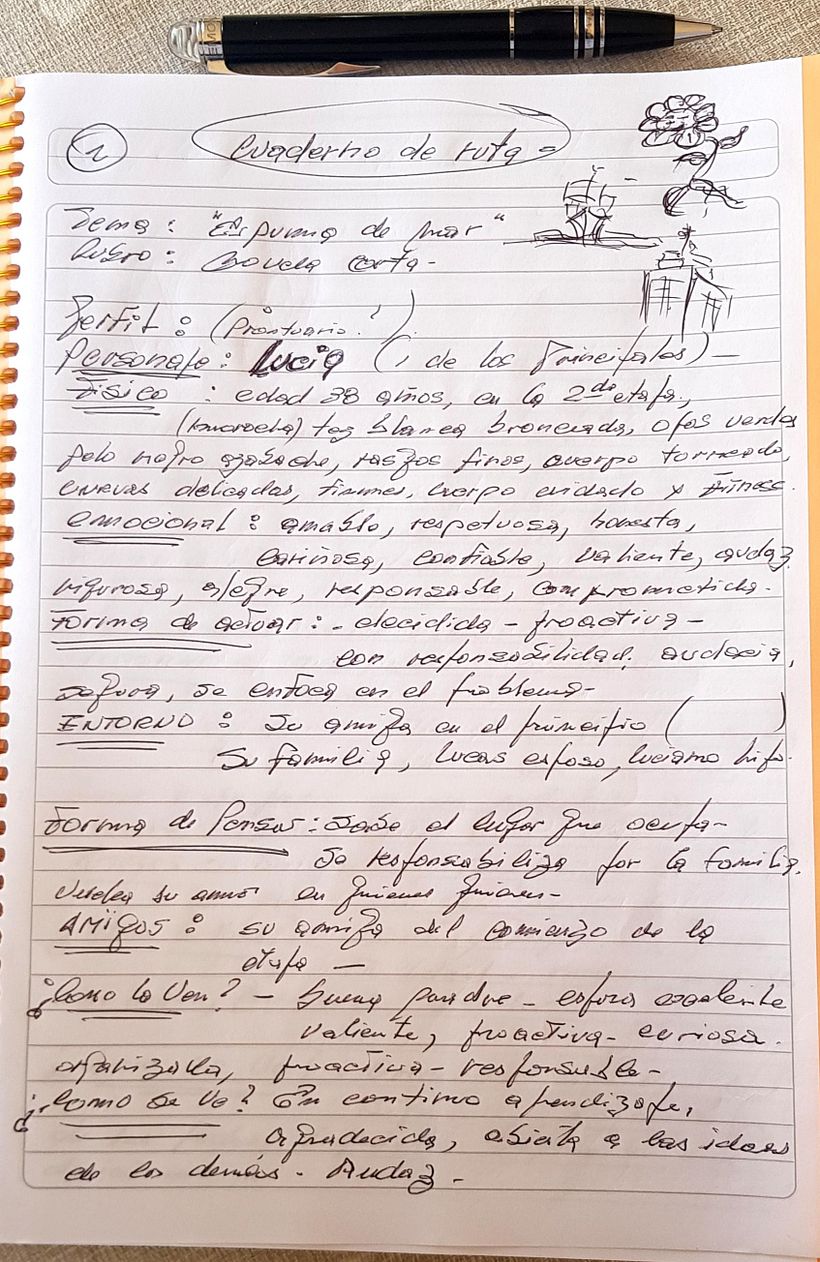 1
Cuaderno de ruta =
Tema: "Espuma de mar"
Rubro: Novela corta -
Perfil: (Prontuario.)
Personaje: Lucia (1 de los Principales) -
Físico: edad 38 años, en la 2da etapa,
(morocha) tez blanca bronceada, ojos verdes
pelo negro azabache, rasgos finos, cuerpo torneado,
curvas delicadas, firmes, cuerpo cuidado x Fitness.
emocional: amable, respetuosa, honesta,
cariñosa, confiable, valiente, audaz
rigurosa, alegre, responsable, comprometida.
Forma de actuar: - decidida - proactiva -
con responsabilidad, audacia,
segura, se enfoca en el problema -
ENTORNO: Su amiga en el principio ( )
Su familia, Lucas esposo, Luciano hijo.
Forma de Pensar: Sabe el lugar que ocupa -
Se responsabiliza por la familia,
su amor en quienes quieren -
AMigos: su amiga del comienzo de la
etapa -
¿Como la Ven? - buena - esposa excelente
valiente, proactiva - curiosa.
organizada, proactiva - responsable -
¿Como se Ve? En continuo aprendizaje,
agradecida, abierta a las ideas
de los demás. Audaz -